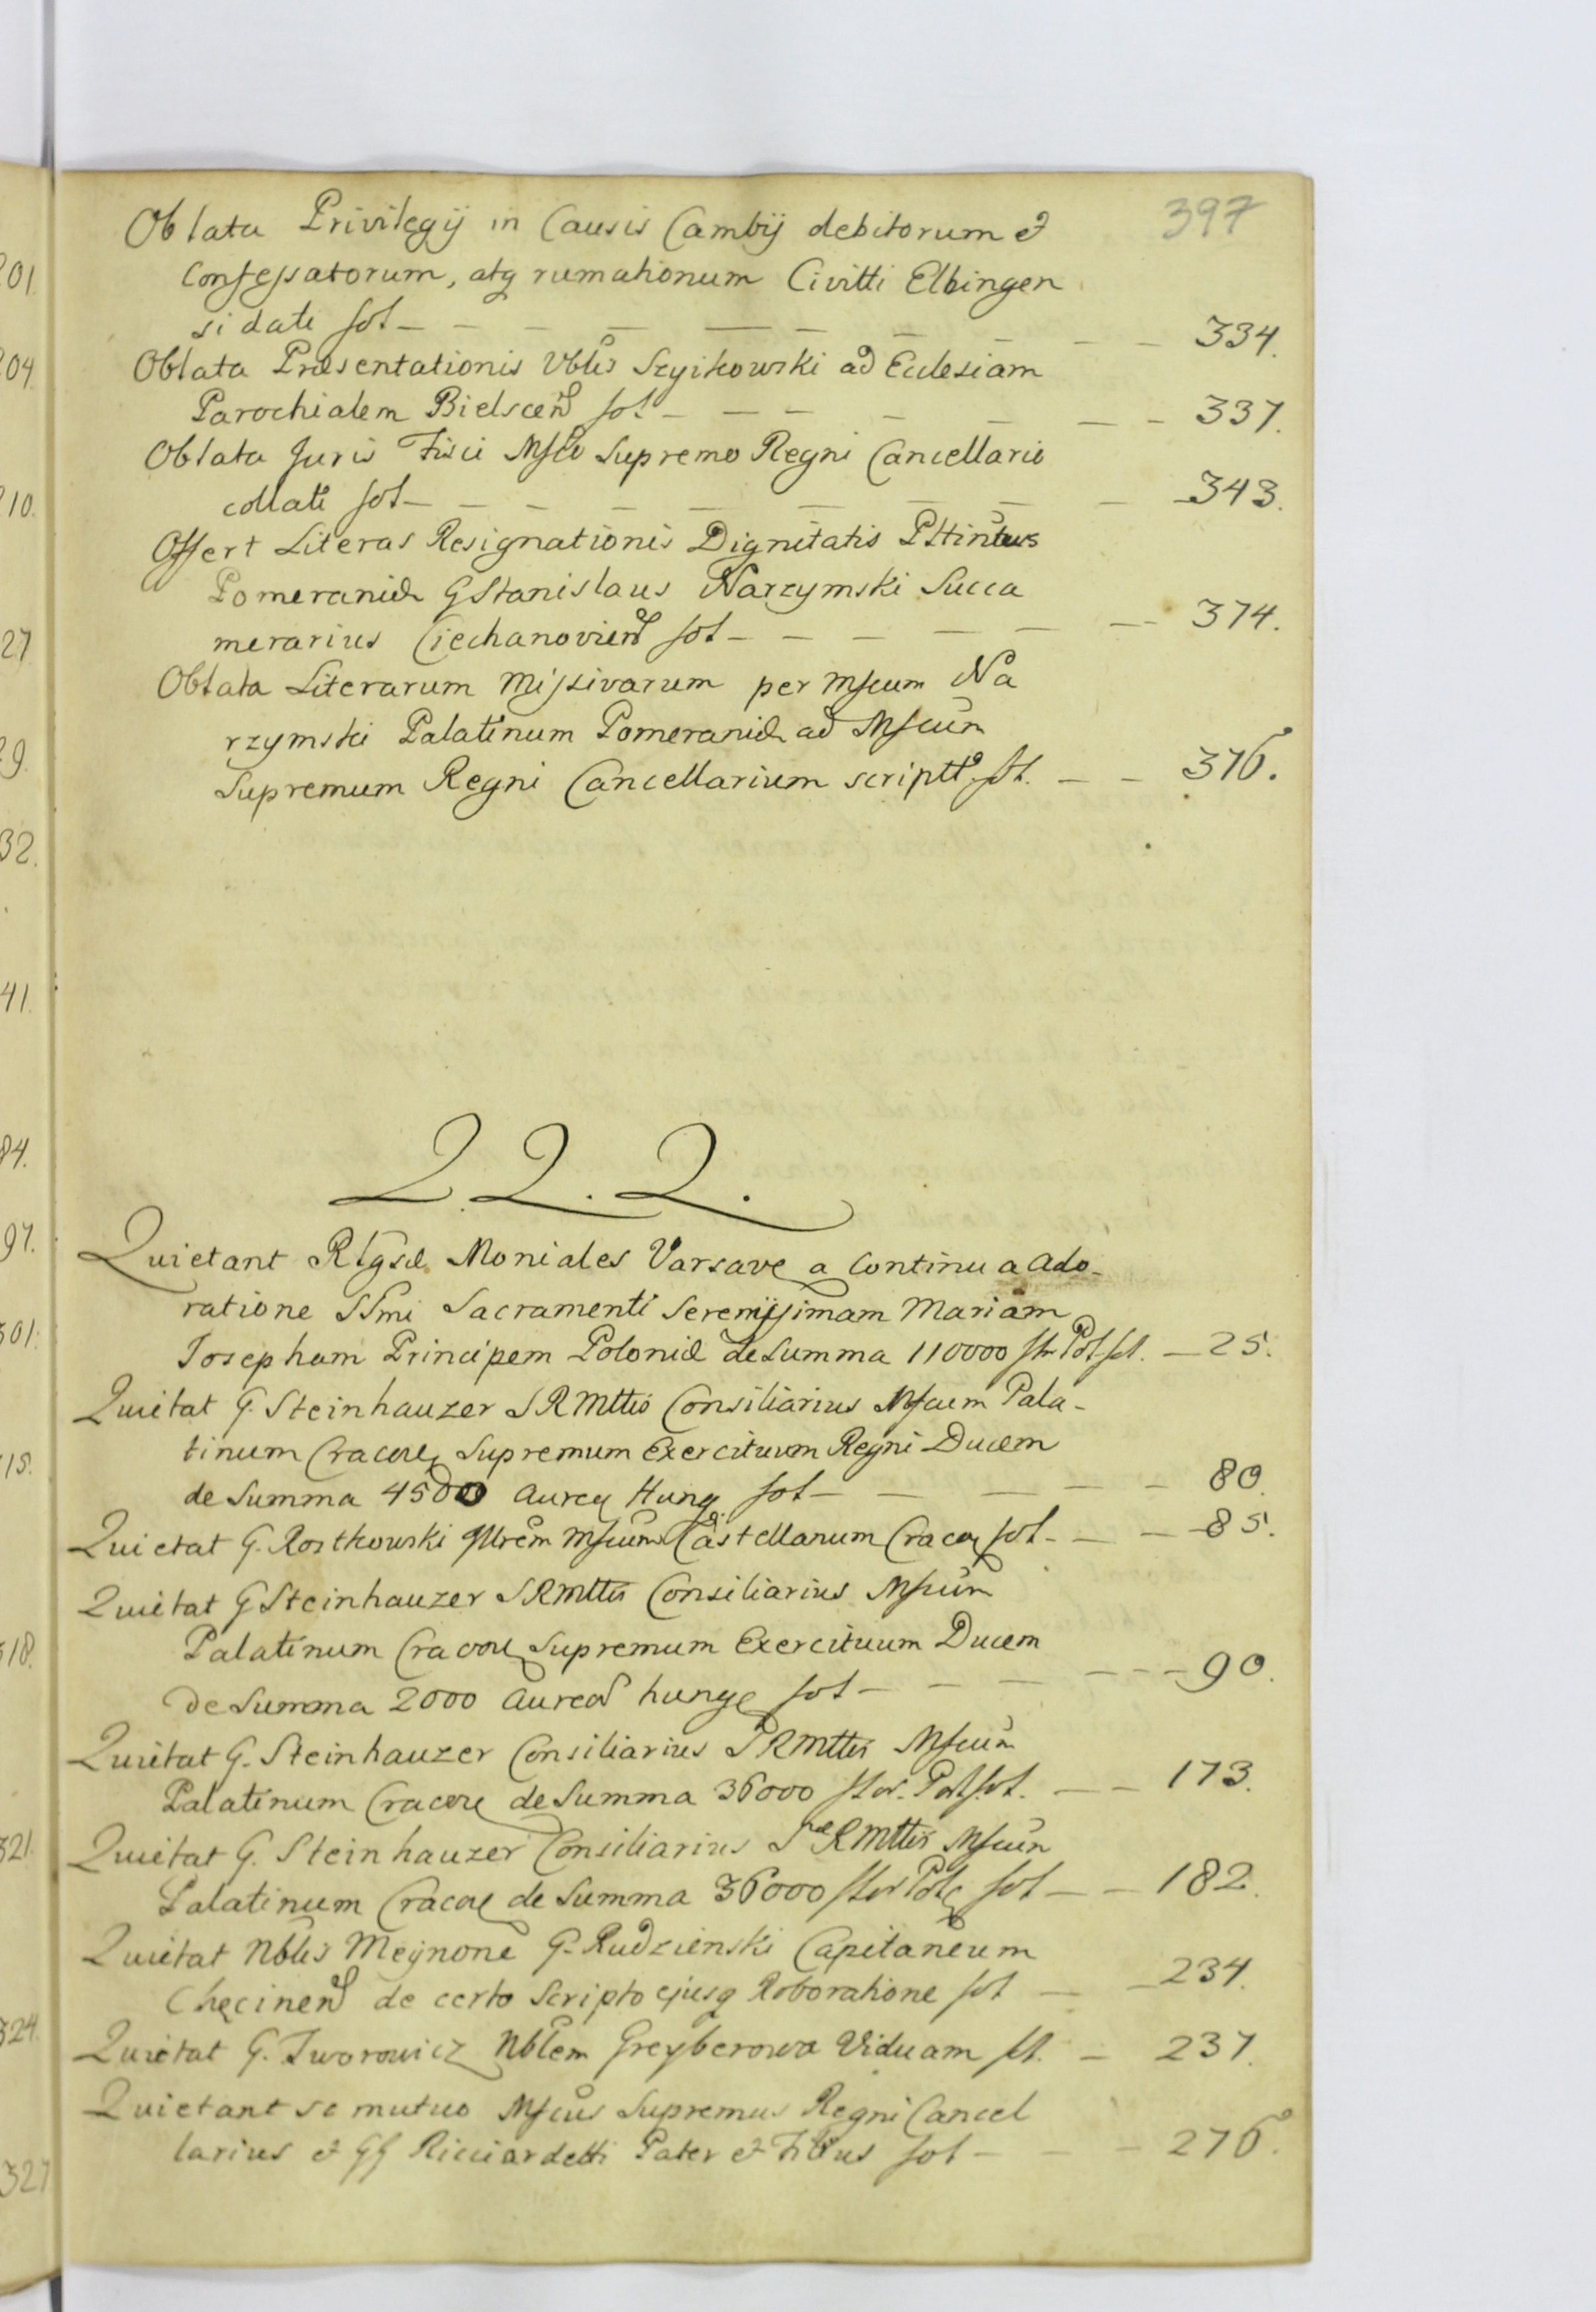 397
Oblata Privilegij in Causis Cambij debitorum et
Confessatorum, atq rumationum Civitti Elbingen
si dati fol - - - - - 334.
Oblata Præsentationis Vblis Szyikowski ad Ecclesiam
Parochialem Bielscen fol - - - - 337.
Oblata Juris Fisci Mfco Supremo Regni Cancellario
collati fol - - - - - 343.
Offert Literas Resignationis Dignitatis Plttinatus
Pomeraniæ G Stanislaus Narzymski Succa
merarius Ciechanovien fol - - - - 374.
Oblata Literarum Missivarum per Mfcum Na
rzymski Palatinum Pomeraniæ ad Mfcum
Supremum Regni Cancellarium scriptt. fol. - - 376.
Q. Q. Q.
Quietant Rlgsæ Moniales Varsave a Continua Ado-
ratione SSmi Sacramenti Serenissimam Mariam
Josepham Principem Poloniæ de Summa 110000 flor Pol. fol. - 25.
Quietat G. Steinhauzer S R Mttis Consiliarius Mfcum Pala-
tinum Cracove Supremum Exercituum Regni Ducem
de Summa 4500 Aureq Hung fol - - - 80.
Quietat G. Rostkowski Illrem Mfcum Castellanum Cracov fol - - 85.
Quietat G Steinhauzer S R Mttis Consiliarius Mfcum
Palatinum Cracove Supremum Exercituum Ducem
de Summa 2000 Aureor hunge fol - - - 90.
Quietat G. Steinhauzer Consiliarius S R Mttis Mfcum
Palatinum Cracove de Summa 36000 flor. Pol. fol. - - 173.
Quietat G. Steinhauzer Consiliarius Sæ R Mttis Mfcum
Palatinum Cracove de Summa 36000 flor Pole fol - - 182.
Quietat Nblis Meynone G. Rudzienski Capitaneum
Chęcinen de certo Scripto ejusq Roboratione fol - - 234.
Quietat G. Jworowicz Nblem Greyberowa Viduam fol. - 237.
Quietant se mutuo Mfcus Supremus Regni Cancel
larius et GG Ricciardetti Pater et Filius fol - - 276.